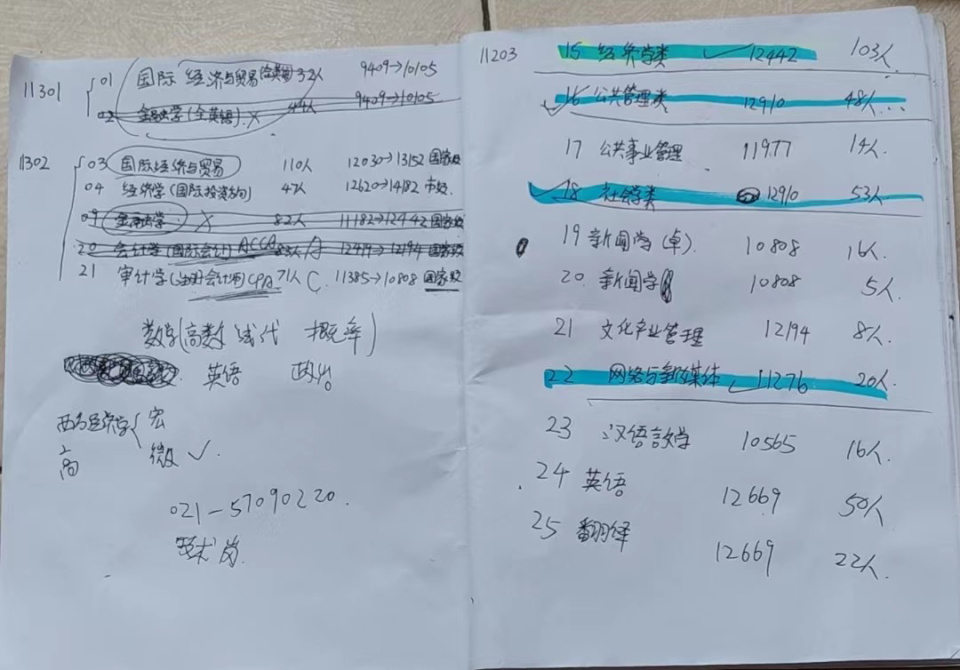 11301
01 国际经济与贸易(全英语) 32人 9409→10105
02 金融学(全英语) X 44人 9409→10105
11302
03 国际经济与贸易 110人 12030→13152 国家级
04 经济学(国际投资方向) 47人 12620→14182 市级
09 金融学 X 82人 11182→12442 国家级
20 会计学(国际会计) ACCA 83人 12419→12194 国家级
21 审计学(注册会计师) CPA 71人 C 11385→10808 国家级
数学(高数 线代 概率)
英语 政治
西方经济学 宏
微 ✓
高
021-57090220.
11203
15 经济学类 ✓ 12442 103人
✓ 16 公共管理类 12910 48人...
17 公共事业管理 11977 14人
18 社会学类 12910 53人
19 新闻学(卓). 10808 16人
20. 新闻学 10808 5人
21 文化产业管理 12194 8人
22 网络与新媒体 ✓ 11276 20人
23 汉语言文学 10565 16人
24 英语 12669 50人
25 翻译 12669 22人